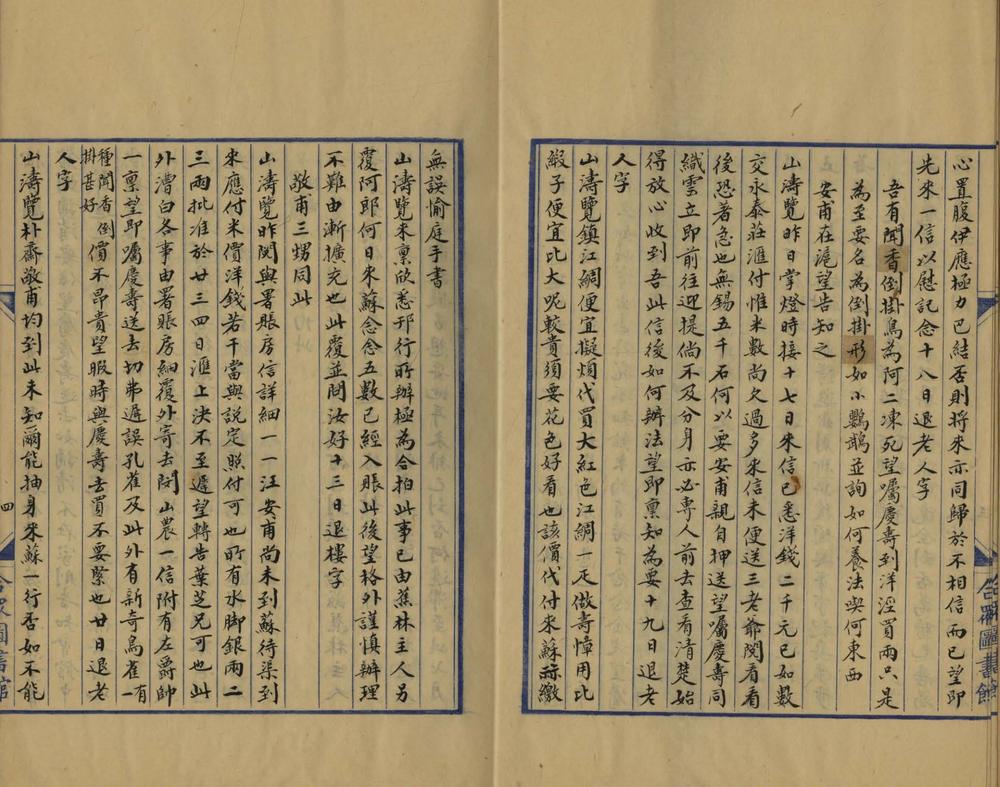 心置腹伊應極力巴結否則將來亦同歸於不相信而已望即
先來一信以慰記念十八日退老人字
吾有聞香倒掛鳥為阿二凍死望囑慶壽到洋涇買兩只是
為至要名為倒掛形如小鸚鵡並詢如何養法喫何東西
安甫在滬望告知之
山濤覽昨日掌燈時接十七日來信已悉洋錢二千元已如數
交永泰莊滙付惟米數尚欠過多來信未便送三老爺閱看看
後恐著急也無錫五千石何以要安甫親自押送望囑慶壽同
織雲立即前往迎提倘不及分身亦必專人前去查看清楚始
得放心收到吾此信後如何辦法望即稟知為要十九日退老
人字
山濤覽鎮江綢便宜擬煩代買大紅色江綢一疋做壽幛用比
緞子便宜比大呢較貴須要花色好看也該價代付來蘇繳
無誤愉庭手書
山濤覽來稟欣悉邗行所辦極為合拍此事已由蕉林主人另
覆阿郎何日來蘇念念五數已經入賬此後望格外謹慎辦理
不難由漸擴充也此覆並問汝好十三日退樓字
敬甫三甥同此
山濤覽昨閱與署賬房信詳細一一江安甫尚未到蘇待渠到
來應付米價洋錢若干當與說定照付可也所有水腳銀兩二
三兩批准於廿三四日滙上決不至遲望轉告葉芝兄可也此
外漕白各事由署賬房細覆外寄去閱山農一信附有左爵帥
一稟望即囑慶壽送去切弗遲誤孔雀及此外有新奇鳥雀一有
種聞香倒
掛甚好
價不昂貴望暇時與慶壽去買不要緊也廿日退老
人字
山濤覽朴齋敬甫均到此未知爾能抽身來蘇一行否如不能
四
合眾圖書館
合眾圖書館